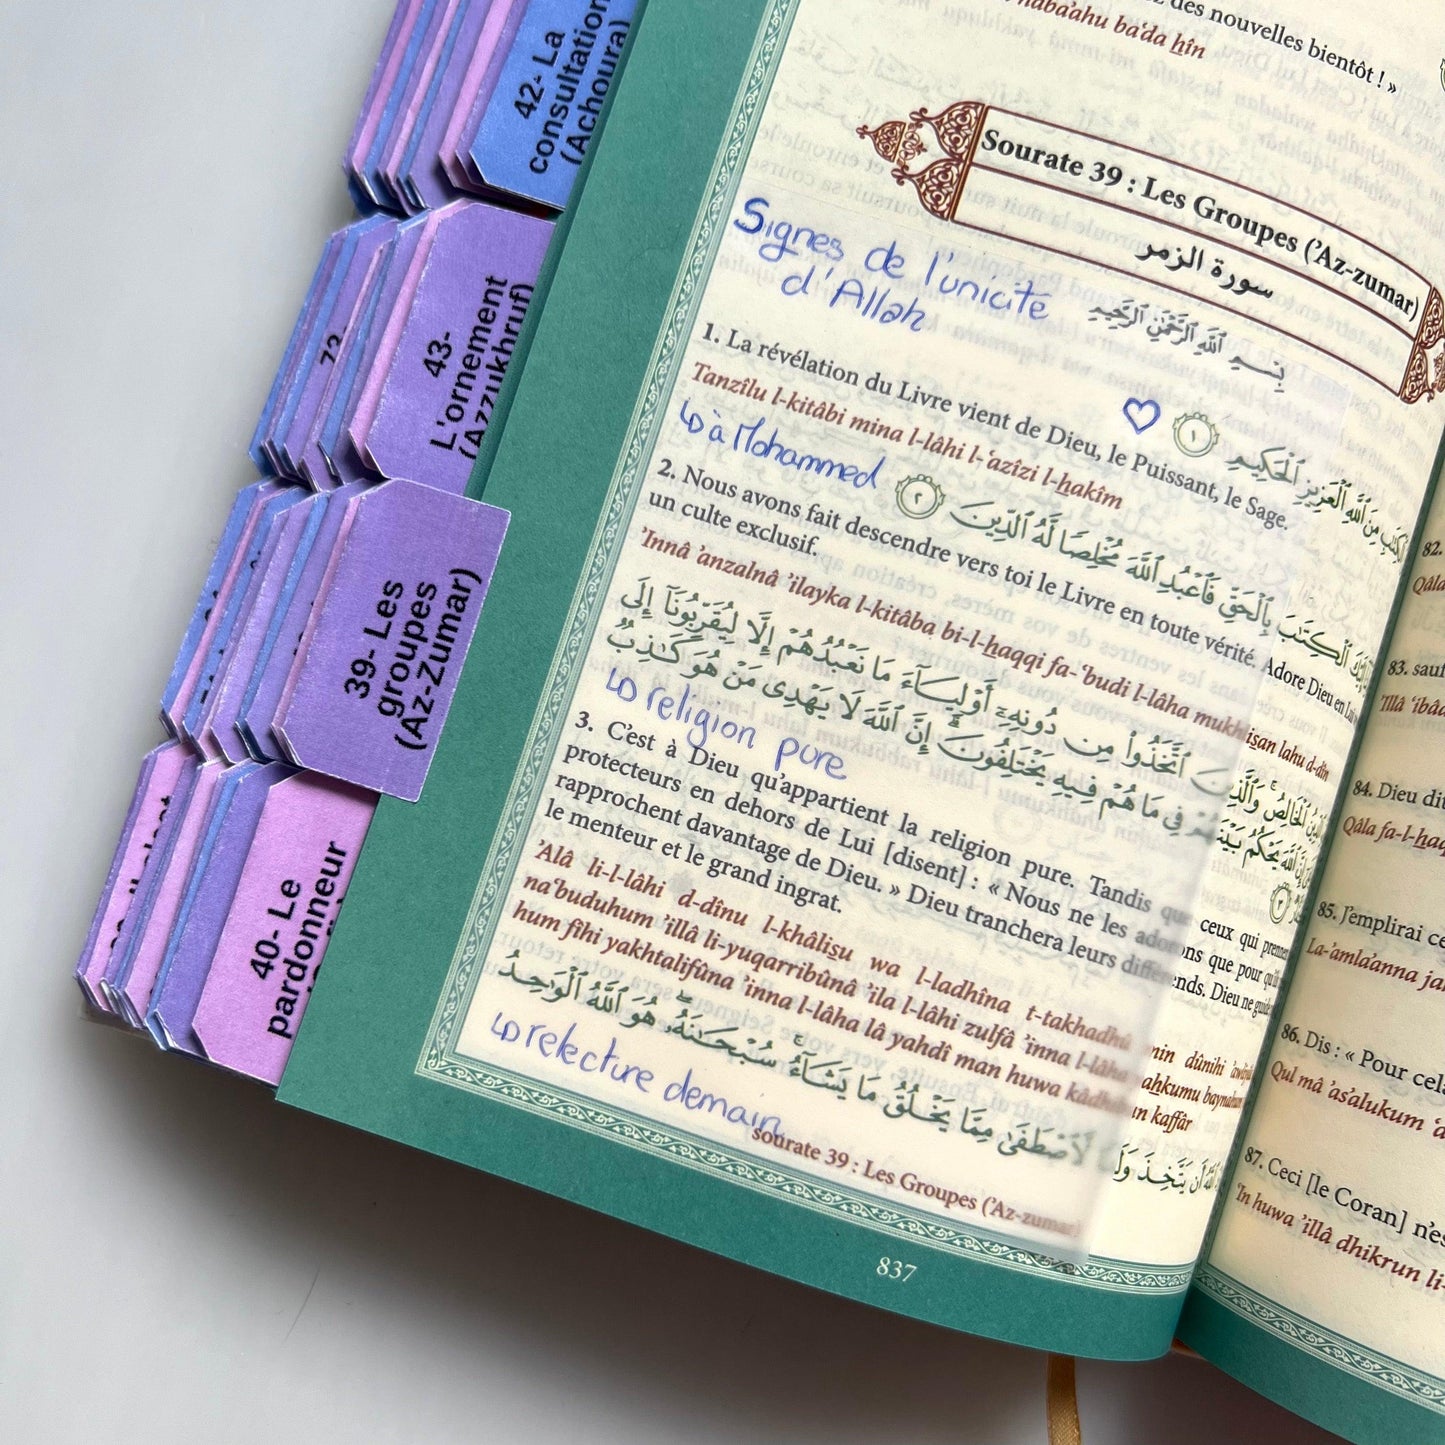 42- La
consultation
(Achoura)
43-
L'ornement
(Azzukhruf)
73
39- Les
groupes
(Az-Zumar)
40- Le
pardonneur
des nouvelles bientôt ! »
naba’ahu ba‘da hîn
Sourate 39 : Les Groupes (’Az-zumar)
سورة الزمر
Signes de l'unicité
d'Allah
بِسْمِ ٱللَّهِ ٱلرَّحْمَٰنِ ٱلرَّحِيمِ
ٱلْكِتَٰبِ مِنَ ٱللَّهِ ٱلْعَزِيزِ ٱلْحَكِيمِ ١
1. La révélation du Livre vient de Dieu, le Puissant, le Sage.
Tanzîlu l-kitâbi mina l-lâhi l-‘azîzi l-hakîm
↳ à Mohammed
ٱلْكِتَٰبَ بِٱلْحَقِّ فَٱعْبُدِ ٱللَّهَ مُخْلِصًا لَّهُ ٱلدِّينَ ٢
2. Nous avons fait descendre vers toi le Livre en toute vérité. Adore Dieu en Lui
un culte exclusif.
’Innâ ’anzalnâ ’ilayka l-kitâba bi-l-haqqi fa-‘budi l-lâha mukhlisan lahu d-dîn
ٱلدِّينُ ٱلْخَالِصُ وَٱلَّذِينَ ٱتَّخَذُوا۟ مِن دُونِهِۦٓ أَوْلِيَآءَ مَا نَعْبُدُهُمْ إِلَّا لِيُقَرِّبُونَآ إِلَى
إِنَّ ٱللَّهَ يَحْكُمُ بَيْنَهُمْ فِى مَا هُمْ فِيهِ يَخْتَلِفُونَ إِنَّ ٱللَّهَ لَا يَهْدِى مَنْ هُوَ كَٰذِبٌ
٣
↳ religion pure
3. C’est à Dieu qu’appartient la religion pure. Tandis que ceux qui prennent
protecteurs en dehors de Lui [disent] : « Nous ne les adorons que pour qu’ils
rapprochent davantage de Dieu. » Dieu tranchera leurs différends. Dieu ne guide
le menteur et le grand ingrat.
’Alâ li-l-lâhi d-dînu l-khâlisu wa l-ladhîna t-takhadhû min dûnihi
na‘buduhum ’illâ li-yuqarribûnâ ’ila l-lâhi zulfâ ’inna l-lâha yahkumu baynahum
hum fîhi yakhtalifûna ’inna l-lâha lâ yahdî man huwa kâdhibun kaffâr
ٱللَّهُ أَن يَتَّخِذَ وَلَدًا لَّٱصْطَفَىٰ مِمَّا يَخْلُقُ مَا يَشَآءُ سُبْحَٰنَهُۥ هُوَ ٱللَّهُ ٱلْوَٰحِدُ
↳ relecture demain
sourate 39 : Les Groupes (’Az-zumar)
837
82.
Qâla
83. sauf
’Illâ ‘ibâ
84. Dieu dit
Qâla fa-l-haq
85. J’emplirai ce
La-’amla’anna ja
86. Dis : « Pour cela
Qul mâ ’as’alukum ‘a
87. Ceci [le Coran] n’es
’In huwa ’illâ dhikrun li-